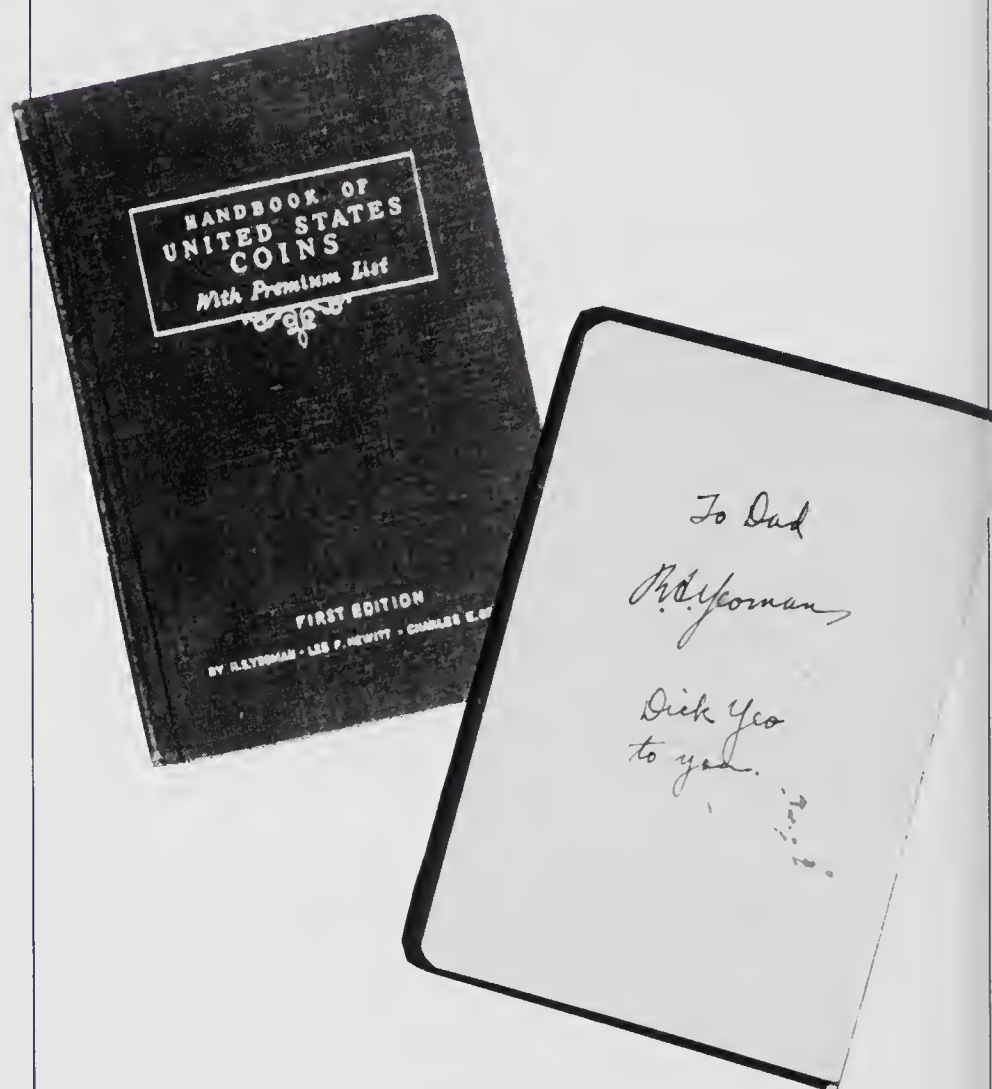 HANDBOOK OF
UNITED STATES
COINS
With Premium List
FIRST EDITION
BY R.S. YEOMAN • LEE F. HEWITT • CHARLES E.
To Dad
R.S. Yeoman
Dick Yeo
to you.